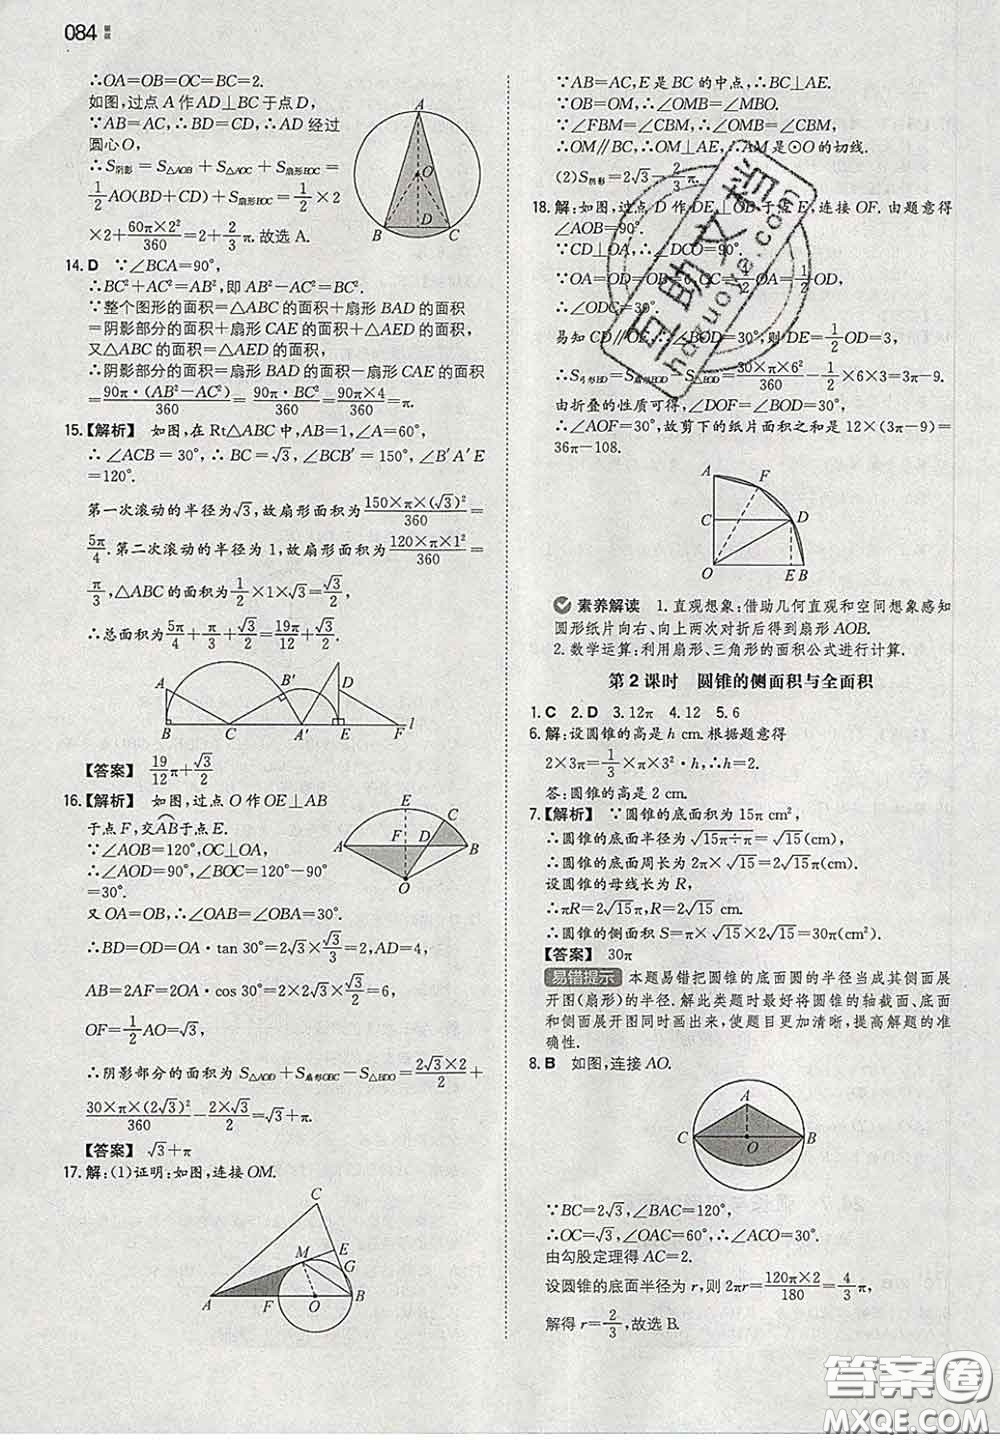 084
∴OA=OB=OC=BC=2.
如图,过点A作AD⊥BC于点D,
∵AB=AC,∴BD=CD,∴AD 经过
圆心O,
∴S阴影=S△AOB+S△AOC+S扇形BOC=
1/2 AO(BD+CD)+S扇形BOC=1/2×2
×2+60π×2²/360=2+2/3 π.故选 A.
A
O
B
D
C
14. D ∵∠BCA=90°,
∴BC²+AC²=AB²,即 AB²-AC²=BC².
∵整个图形的面积=△ABC的面积+扇形BAD的面积
=阴影部分的面积+扇形CAE的面积+△AED的面积,
又△ABC的面积=△AED的面积,
∴阴影部分的面积=扇形BAD的面积-扇形CAE的面积=
90π·(AB²-AC²)/360=90π·BC²/360=90π×4/360=π.
15.【解析】 如图,在Rt△ABC中,AB=1,∠A=60°,
∴∠ACB=30°,∴BC=√3,∠BCB′=150°,∠B′A′E
=120°.
第一次滚动的半径为√3,故扇形面积为150×π×(√3)²/360=
5π/4.第二次滚动的半径为1,故扇形面积为120×π×1²/360=
π/3,△ABC的面积为1/2×1×√3=√3/2,
∴总面积为5π/4+π/3+√3/2=19π/12+√3/2.
A
B′
D
B
C
A′
E
F
l
【答案】 19/12 π+√3/2
16.【解析】 如图,过点O作OE⊥AB
于点F,交AB于点E.
∵∠AOB=120°,OC⊥OA,
∴∠AOD=90°,∠BOC=120°-90°
=30°.
又OA=OB,∴∠OAB=∠OBA=30°.
E
C
A
F
D
B
O
∴BD=OD=OA·tan 30°=2√3×√3/3=2,AD=4,
AB=2AF=2OA·cos 30°=2×2√3×√3/2=6,
OF=1/2 AO=√3,
∴阴影部分的面积为S△AOD+S扇形OBC-S△BDO=2√3×2/2+
30×π×(2√3)²/360-2×√3/2=√3+π.
【答案】 √3+π
17.解:(1)证明:如图,连接OM.
C
M
E
G
A
F
O
B
∵AB=AC,E是BC的中点,∴BC⊥AE.
∵OB=OM,∴∠OMB=∠MBO.
∵∠FBM=∠CBM,∴∠OMB=∠CBM,
∴OM∥BC,∴OM⊥AE,∴AM是⊙O的切线.
(2)S阴影=2√3-2/3 π.
18.解:如图,过点D作DE⊥OB于点E,连接OF.由题意得
∠AOB=90°.
∵CD⊥OA,∴∠DCO=90°.
∵OA=OD=OB=6,OC=1/2 OA=1/2 OD,
∴∠ODC=30°.
易知CD∥OE,∴∠BOD=30°,则DE=1/2 OD=3,
∴S弓形BD=S扇形BOD-S△BOD=30×π×6²/360-1/2×6×3=3π-9.
由折叠的性质可得,∠DOF=∠BOD=30°,
∴∠AOF=30°,故剪下的纸片面积和是12×(3π-9)=
36π-108.
A
F
C
D
O
E
B
素养解读 1.直观想象:借助几何直观和空间想象感知
圆形纸片向右、向上两次对折后得到扇形AOB.
2.数学运算:利用扇形、三角形的面积公式进行计算.
第2课时 圆锥的侧面积与全面积
1.C 2.D 3.12π 4.12 5.6
6.解:设圆锥的高是h cm.根据题意得
2×3π=1/3×π×3²·h,∴h=2.
答:圆锥的高是2 cm.
7.【解析】 ∵圆锥的底面积为15π cm²,
∴圆锥的底面半径为√15π÷π=√15(cm),
∴圆锥的底面周长为2π×√15=2√15π(cm).
设圆锥的母线长为R,
∴πR=2√15π,∴R=2√15 cm.
∴圆锥的侧面积S=π×√15×2√15=30π(cm²).
【答案】 30π
易错提示 本题易错把圆锥的底面圆的半径当成其侧面展
开图(扇形)的半径.解此类题时最好将圆锥的轴截面、底面
和侧面展开图同时画出来,使题目更加清晰,提高解题的准
确性.
8. B 如图,连接AO.
A
C
O
B
∵BC=2√3,∠BAC=120°,
∴OC=√3,∠OAC=60°,∴∠ACO=30°.
由勾股定理得AC=2.
设圆锥的底面半径为r,则2πr=120π×2/180=4/3 π,
解得r=2/3,故选B.
互助文档
hdguoye.com
答案圈
MXQE.COM